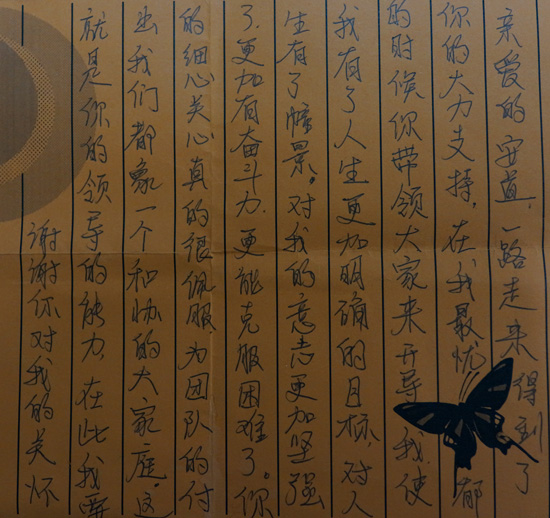 亲爱的安直，一路走来得到了
你的大力支持，在我最忧郁
的时候你带领大家来开导我，使
我有了人生更加明确的目标，对人
生有了憧景。对我的意志更加坚强
了，更加有奋斗力，更能克服困难了。你
的细心关心真的很佩服为团队的付
出我们都象一个和协的大家庭。这
就是你的领导的能力，在此我要
谢谢你对我的关怀